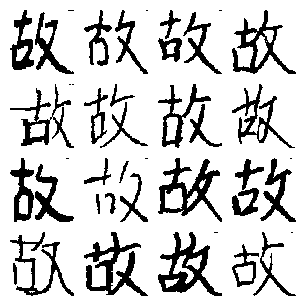 故故故故
故故故故
故故故故
故故故故